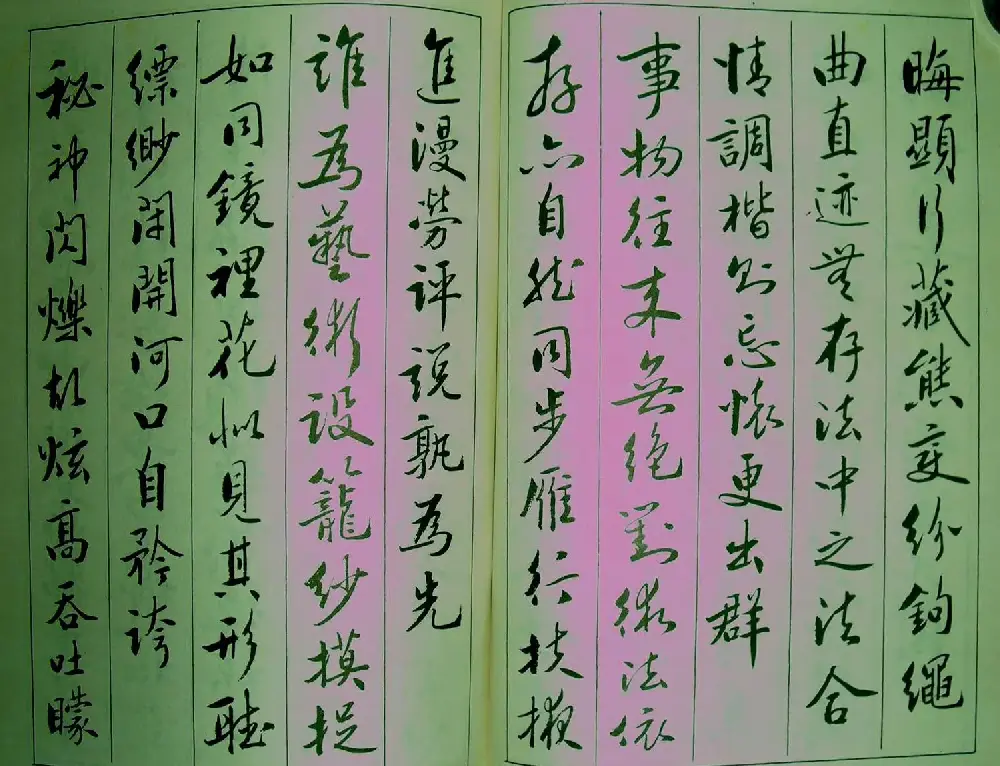 晦顯行藏態变紛鉤繩
曲直迹無存法中之法合
情調楷則忘懷更出群
事物往来無絶對術法依
存亦自然同步雁行扶掖
進漫勞評説孰為先
誰為藝術設籠紗摸捉
如同鏡裡花似見其形聴
縹緲閑開河口自矜誇
秘神閃爍故炫高吞吐矇